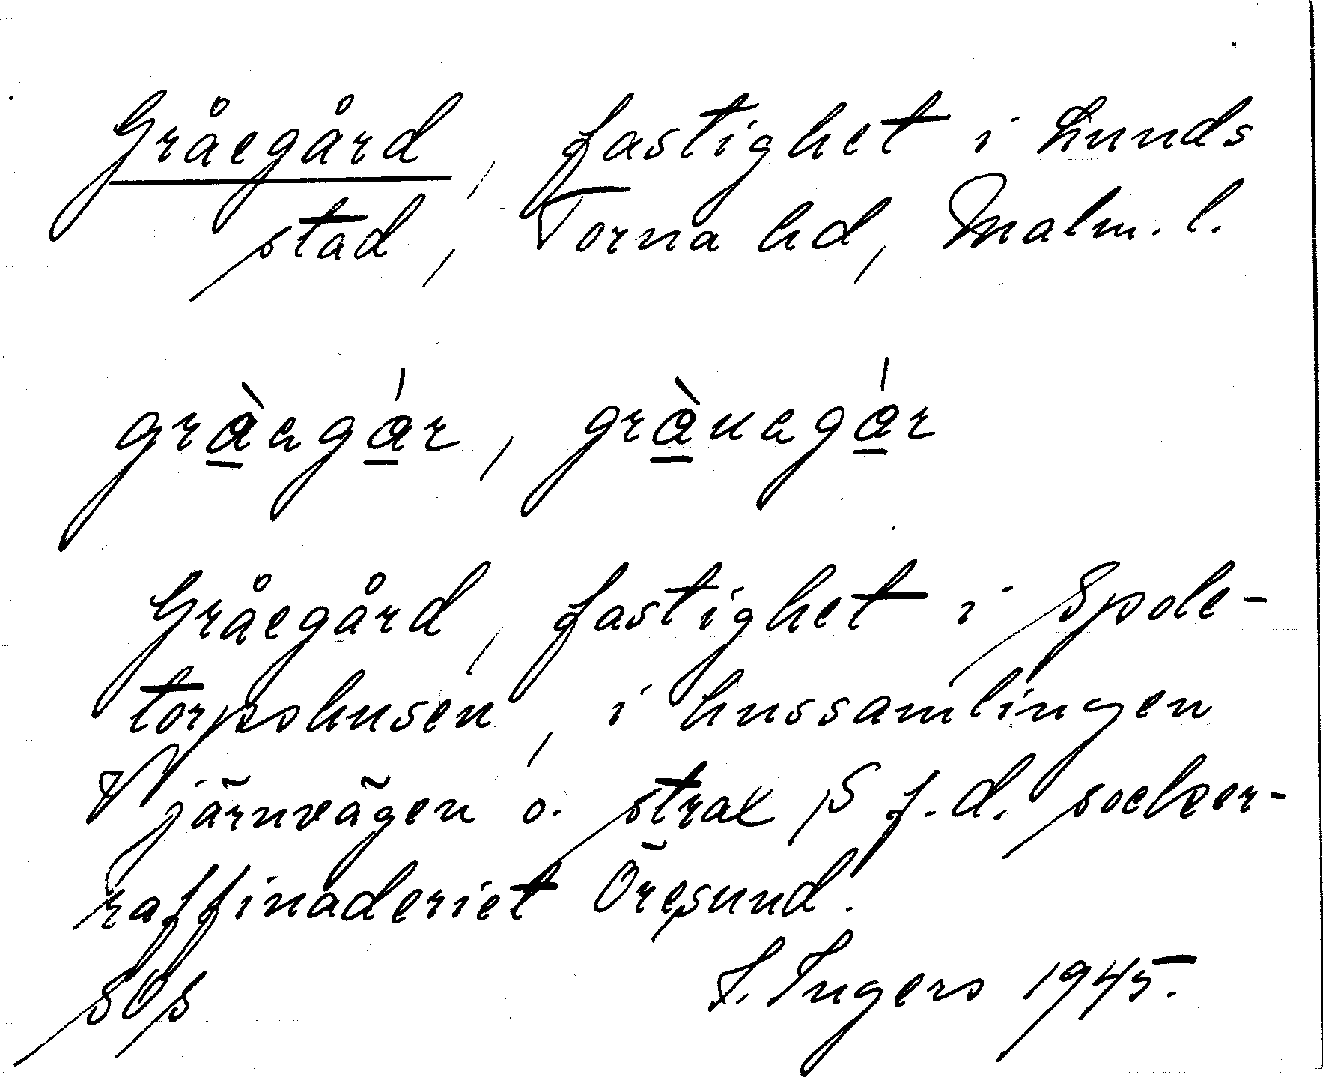 Gråegård, fastighet i Lunds
stad, Torna hd, Malm. l.
gràegár, grànegár
Gråegård, fastighet i Spole-
torpshusen, i hussamlingen
V järnvägen o. strax S f.d. socker-
raffinaderiet Öresund.
I. Ingers 1945.